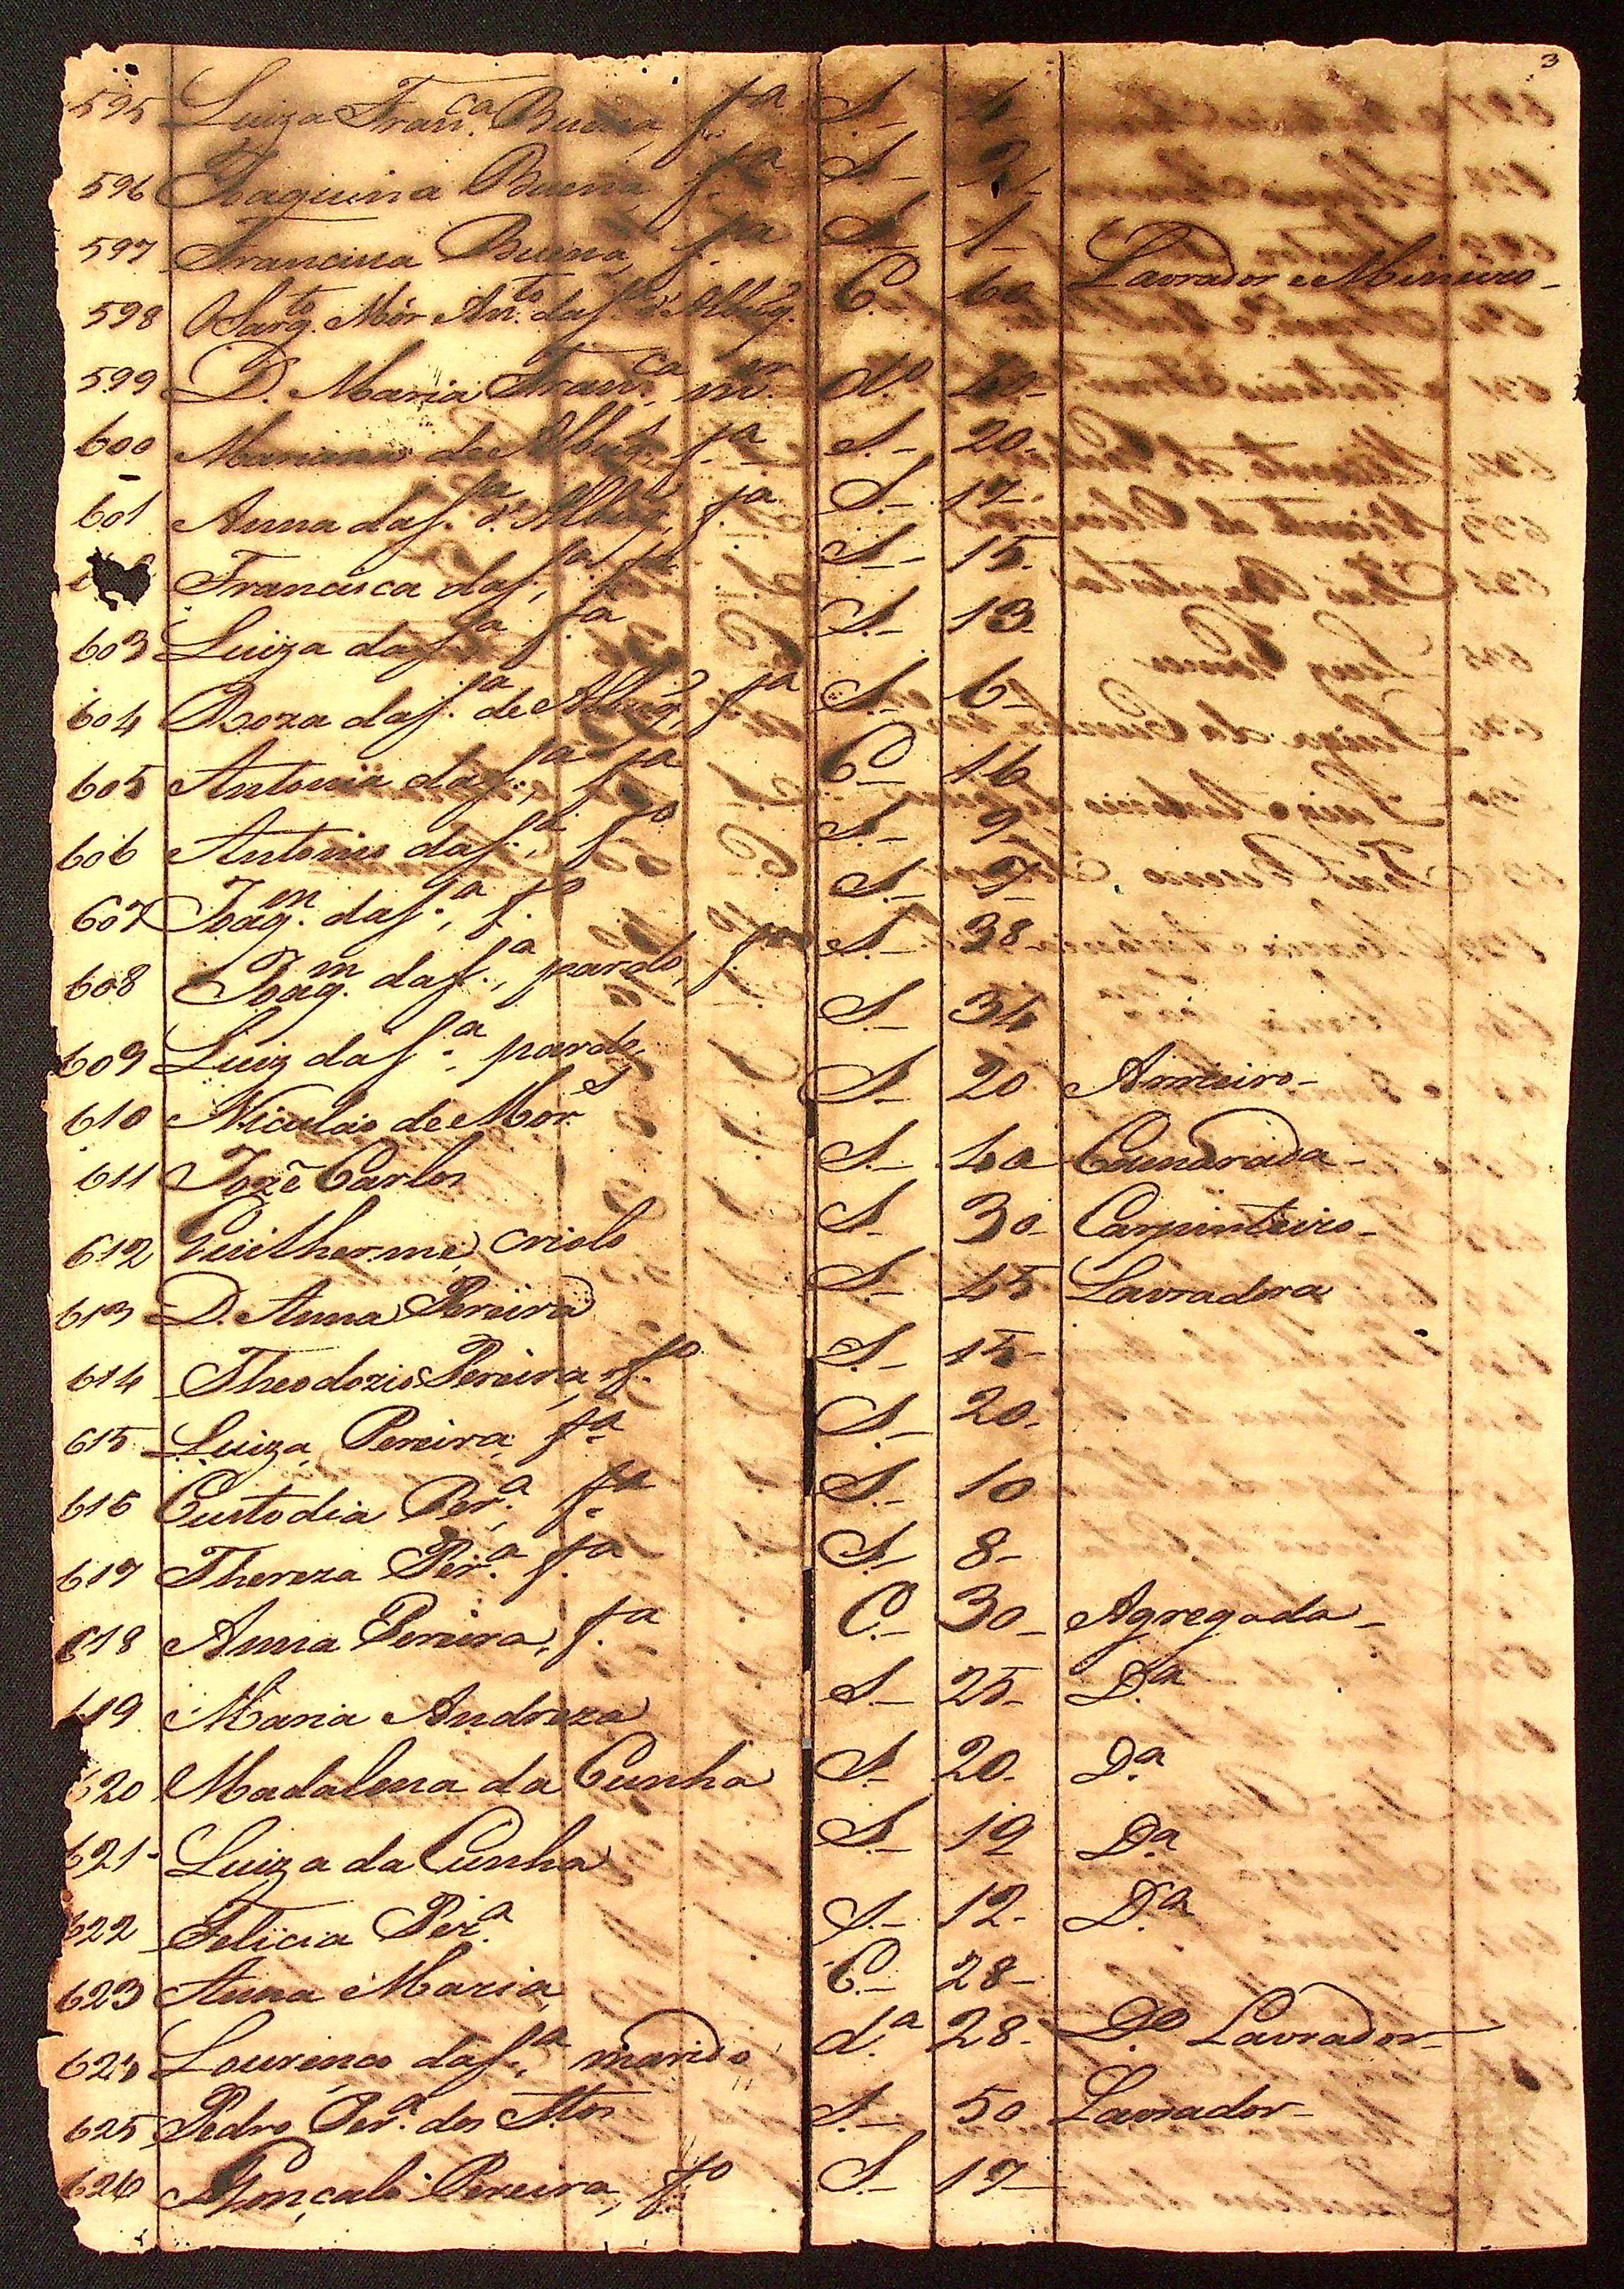 3
595 Luiza Fran.ca Buena, f.a S.- 4-
596 Joaquina Buena, f.a S.- 2-
597 Francisca Buena, f.a S.- 1-
598 O Sarg.to Mór An.to da S.a d'Albuq. C. 60 Lavrador e Mineiro-
599 D. Maria Fran.ca, m.er d.o 40-
600 Marianna de Albuq., f.a S.- 20-
601 Anna da S.a d'Albuq., f.a S.- 17-
Francisca da S.a, f.a S.- 15-
603 Luiza da S.a, f.a S.- 13-
604 Roza da S.a de Albuq., f.a S.- 6-
605 Antonia da S.a, f.a C.- 16
606 Antonio da S.a, f.o S.- 9-
607 Joaq.m da S.a, f.o S.-
608 Joaq.m da S.a, pardo, S.- 38-
609 Luiz da S.a, pardo, S.- 34
610 Nicoláo de Mor.s S.- 20 Arrieiro-
611 Jozé Carlos S.- 40 Camarada-
612 Guilherme, criolo S.- 30- Carpinteiro-
613 D. Anna Pereira S.- 45 Lavradora
614 Theodozio Pereira, f.o S.- 15-
615 Luiza Pereira, f.a S.- 20-
616 Custodia Per.a, f.a S.- 10
617 Thereza Per.a, f.a S.- 8-
618 Anna Pereira, f.a C.- 30- Agregada-
619 Maria Andreza S.- 25- D.a
620 Madalena da Cunha S.- 20- D.a
621- Luiza da Cunha S.- 19 D.a
622 Felicia Per.a S.- 12- D.a
623 Anna Maria, C.- 28-
624 Lourenço da S.a, marido d.a 28- D.o Lavrador-
625 Pedro Per.a dos St.os S.- 50 Lavrador-
626 Gonçalo Pereira, f.o S.- 17-